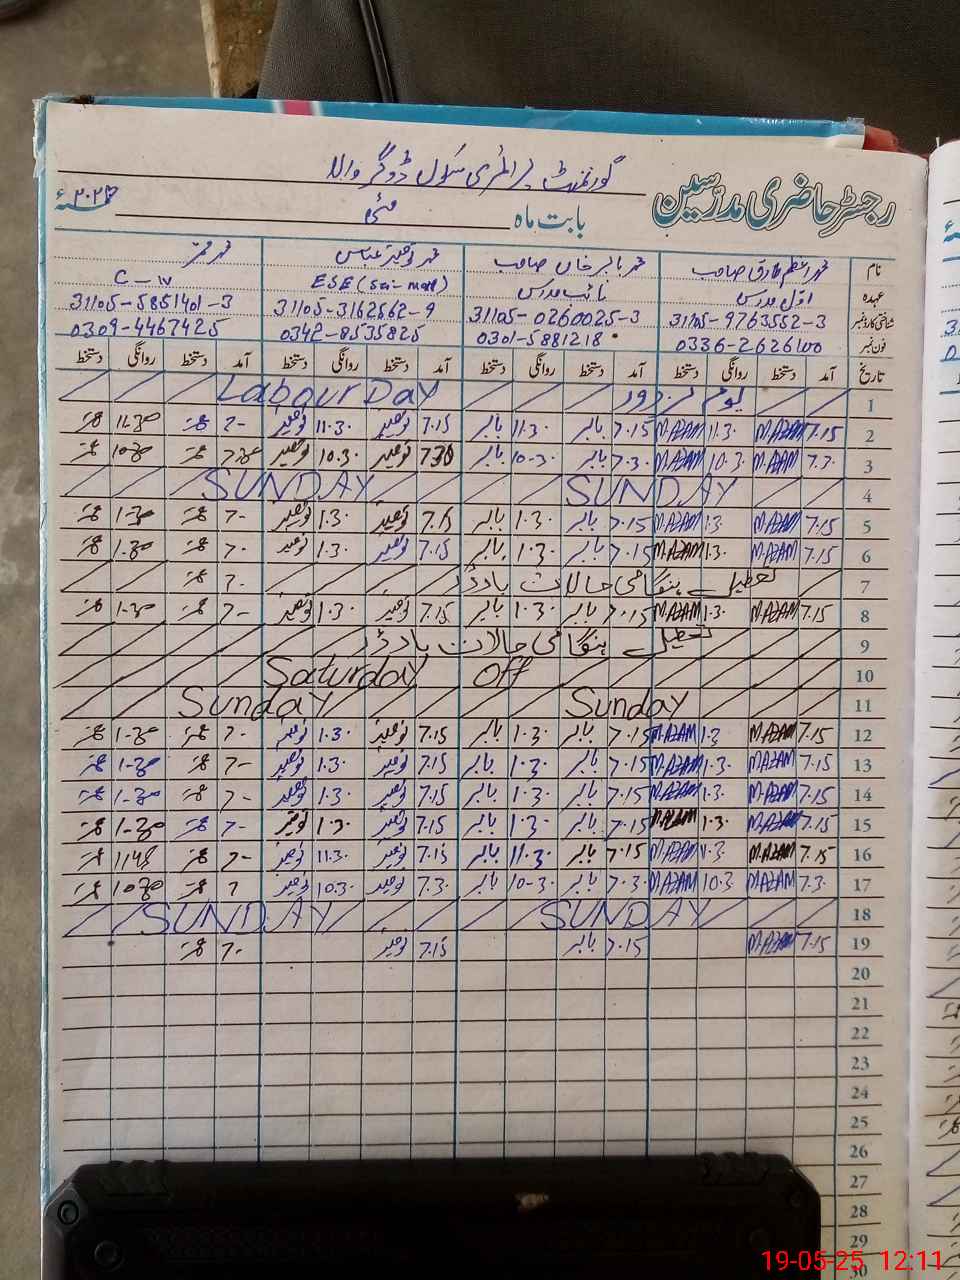 گورنمنٹ پرائمری سکول ڈوگر والا
رجسٹر حاضری مدرسین
بابت ماہ مئی ۲۰۲۵ء
نام محمد اعظم طارق صاحب محمد بابر خان صاحب محمد توحید عباس محمد عمر
عہدہ اول مدرس نائب مدرس ESE (Sci-mat) C-IV
شناختی کارڈ نمبر 31105-9763552-3 31105-0260025-3 31105-3162562-9 31105-5851401-3
فون نمبر 0336-2626100 0301-5881218 0342-8535825 0309-4467425
تاریخ آمد دستخط روانگی دستخط آمد دستخط روانگی دستخط آمد دستخط روانگی دستخط آمد دستخط روانگی دستخط
1 یوم مزدور Labour Day
2 7.15 M.AZAM 11.3. M.AZAM 7.15 بابر 11.3. بابر 7.15 توحید 11.3. توحید 7- عمر 11-30 عمر
3 7.3. M.AZAM 10.3. M.AZAM 7.3. بابر 10-3. بابر 730 توحید 10.3. توحید عمر 10-30 عمر
4 SUNDAY SUNDAY
5 7.15 M.AZAM 1.3. M.AZAM 7.15 بابر 1.3. بابر 7.15 توحید 1.3. توحید 7- عمر 1-30 عمر
6 7.15 M.AZAM 1.3. M.AZAM 7.15 بابر 1.3. بابر 7.15 توحید 1.3. توحید 7- عمر 1-30 عمر
7 تعطیل ہنگامی حالات بارڈر 7- عمر
8 7.15 M.AZAM 1.3. M.AZAM 7.15 بابر 1.3. بابر 7.15 توحید 1.3. توحید 7- عمر 1-30 عمر
9 تعطیل ہنگامی حالات بارڈر
10 Saturday Off
11 Sunday Sunday
12 7.15 M.AZAM 1.3 M.AZAM 7.15 بابر 1.3. بابر 7.15 توحید 1.3. توحید 7- عمر 1-30 عمر
13 7.15 M.AZAM 1.3. M.AZAM 7.15 بابر 1.3. بابر 7.15 توحید 1.3. توحید 7- عمر 1-30 عمر
14 7.15 M.AZAM 1.3. M.AZAM 7.15 بابر 1.3. بابر 7.15 توحید 1.3. توحید 7- عمر 1-30 عمر
15 7.15 M.AZAM 1.3. M.AZAM 7.15 بابر 1.3. بابر 7.15 توحید 1.3. توحید 7- عمر 1-30 عمر
16 7.15 M.AZAM M.AZAM 7.15 بابر 11.3. بابر 7.15 توحید 11.3. توحید 7- عمر 1145 عمر
17 7.3. M.AZAM 10.3. M.AZAM 7.3. بابر 10-3. بابر 7.3. توحید 10.3. توحید 7 عمر 1030 عمر
18 SUNDAY SUNDAY
19 7.15 M.AZAM 7.15 بابر 7.15 توحید 7- عمر
20
21
22
23
24
25
26
27
28
29
30
19-05-25 12:11